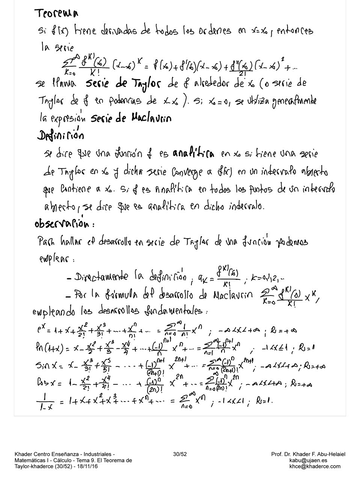 Teorema
Si f(x) tiene derivadas de todos los órdenes en x=x₀, entonces
la serie
∑_{k=0}^{∞} f^{k)}(x₀)/k! (x-x₀)^k = f(x₀)+f'(x₀)(x-x₀)+f''(x₀)/2! (x-x₀)²+...
se llama serie de Taylor de f alrededor de x₀ (o serie de
Taylor de f en potencias de x-x₀). Si x₀=0, se utiliza generalmente
la expresión serie de Maclaurin
Definición
se dice que una función f es analítica en x₀ si tiene una serie
de Taylor en x₀ y dicha serie converge a f(x) en un intervalo abierto
que contiene a x₀. Si f es analítica en todos los puntos de un intervalo
abierto, se dice que es analítica en dicho intervalo.
observación:
Para hallar el desarrollo en serie de Taylor de una función podemos
emplear:
- Directamente la definición, a_k = f^{k)}(x₀)/k!, k=0,1,2,..
- Por la fórmula del desarrollo de Maclaurin ∑_{k=0}^{∞} f^{k)}(0)/k! x^k,
empleando los desarrollos fundamentales:
e^x = 1+x+x²/2!+x³/3!+...+x^n/n!+... = ∑_{n=0}^{∞} 1/n! x^n, -∞<x<+∞, R=+∞
ln(1+x) = x-x²/2+x³/3-x⁴/4
sin x = x-x³/3!+x⁵/5!
cos x = 1-x²/2!+x⁴/4!
1/(1-x) = 1+x+x²+x³+...+x^n+... = ∑_{n=0}^{∞} x^n, -1<x<1, R=1.
Khader Centro Enseñanza - Industriales -
Matemáticas I - Cálculo - Tema 9. El Teorema de
Taylor-khaderce (30/52) - 18/11/16
30/52
Prof. Dr. Khader F. Abu-Helaiel
kabu@ujaen.es
khce@khaderce.com